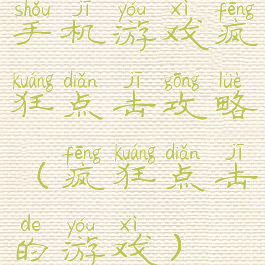 shǒu jī yóu xì fēng
手机游戏疯
kuáng diǎn jī gōng lüè
狂点击攻略
fēng kuáng diǎn jī
（疯狂点击
de yóu xì
的游戏）